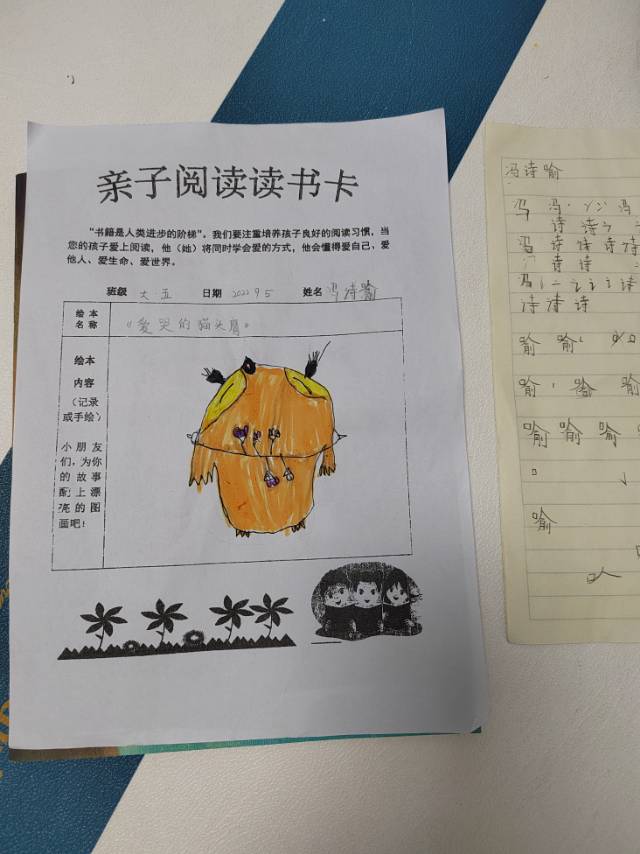 亲子阅读读书卡
“书籍是人类进步的阶梯”。我们要注重培养孩子良好的阅读习惯，当
您的孩子爱上阅读，他（她）将同时学会爱的方式，他会懂得爱自己、爱
他人、爱生命、爱世界。
班级 大五 日期 2022 9 5 姓名 冯诗喻
绘本
名称
《爱哭的猫头鹰》
绘本
内容
（记录
或手绘）
小朋友
们，为你
的故事
配上漂
亮的图
画吧！
冯诗喻
冯 冯 冯
诗 诗
冯 诗 诗 诗 诗
诗 诗
冯 诗
诗 诗 诗
喻 喻
喻 喻 喻
喻 喻 喻 喻
喻